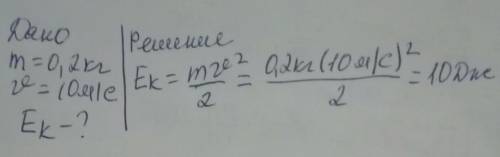 Дано
m = 0,2 кг
v = 10 м/с
Ek - ?
Решение
Ek = mv²/2 = 0,2 кг (10 м/с)²/2 = 10 Дж